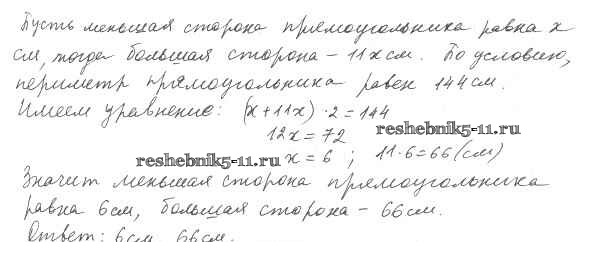 Пусть меньшая сторона прямоугольника равна x
см, тогда большая сторона - 11x см. По условию,
периметр прямоугольника равен 144 см.
Имеем уравнение: (x+11x)·2=144
12x=72 reshebnik5-11.ru
reshebnik5-11.ru x=6 ; 11·6=66(см)
Значит меньшая сторона прямоугольника
равна 6см, большая сторона - 66см.
Ответ: 6см, 66см.